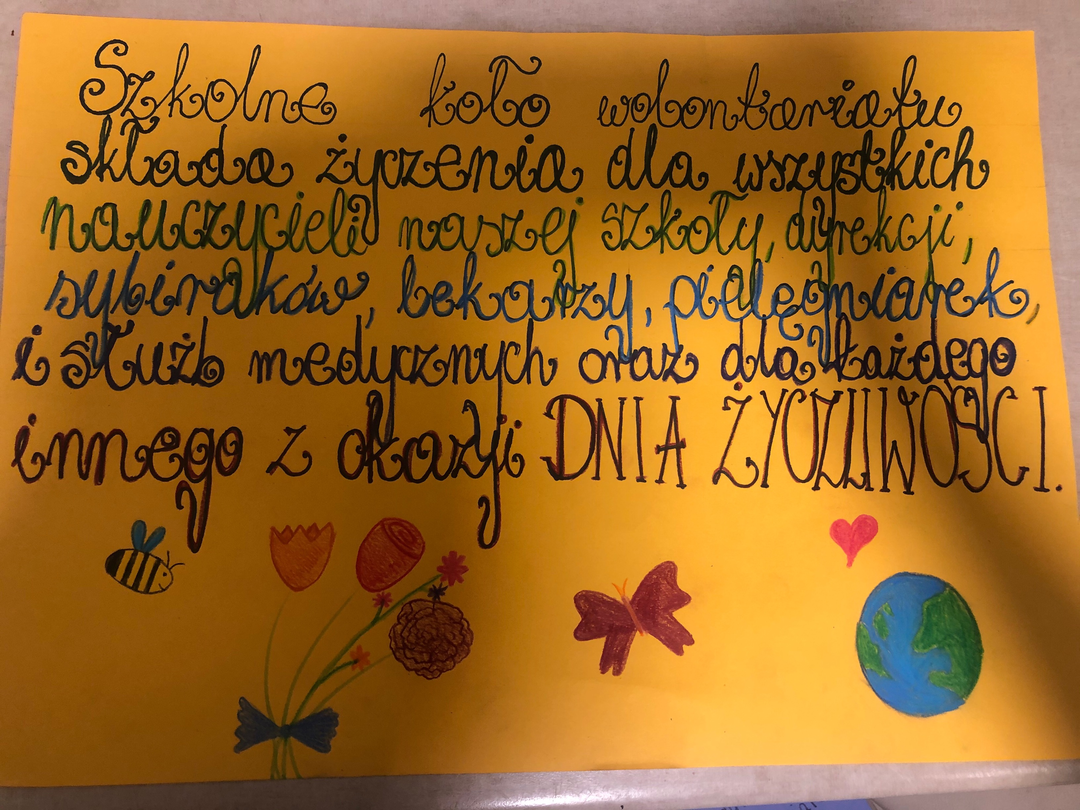 Szkolne koło wolontariatu
składa życzenia dla wszystkich
nauczycieli naszej szkoły, dyrekcji,
sybiraków, lekarzy, pielęgniarek,
i służb medycznych oraz dla każdego
innego z okazyji DNIA ŻYCZLIWOŚCI.